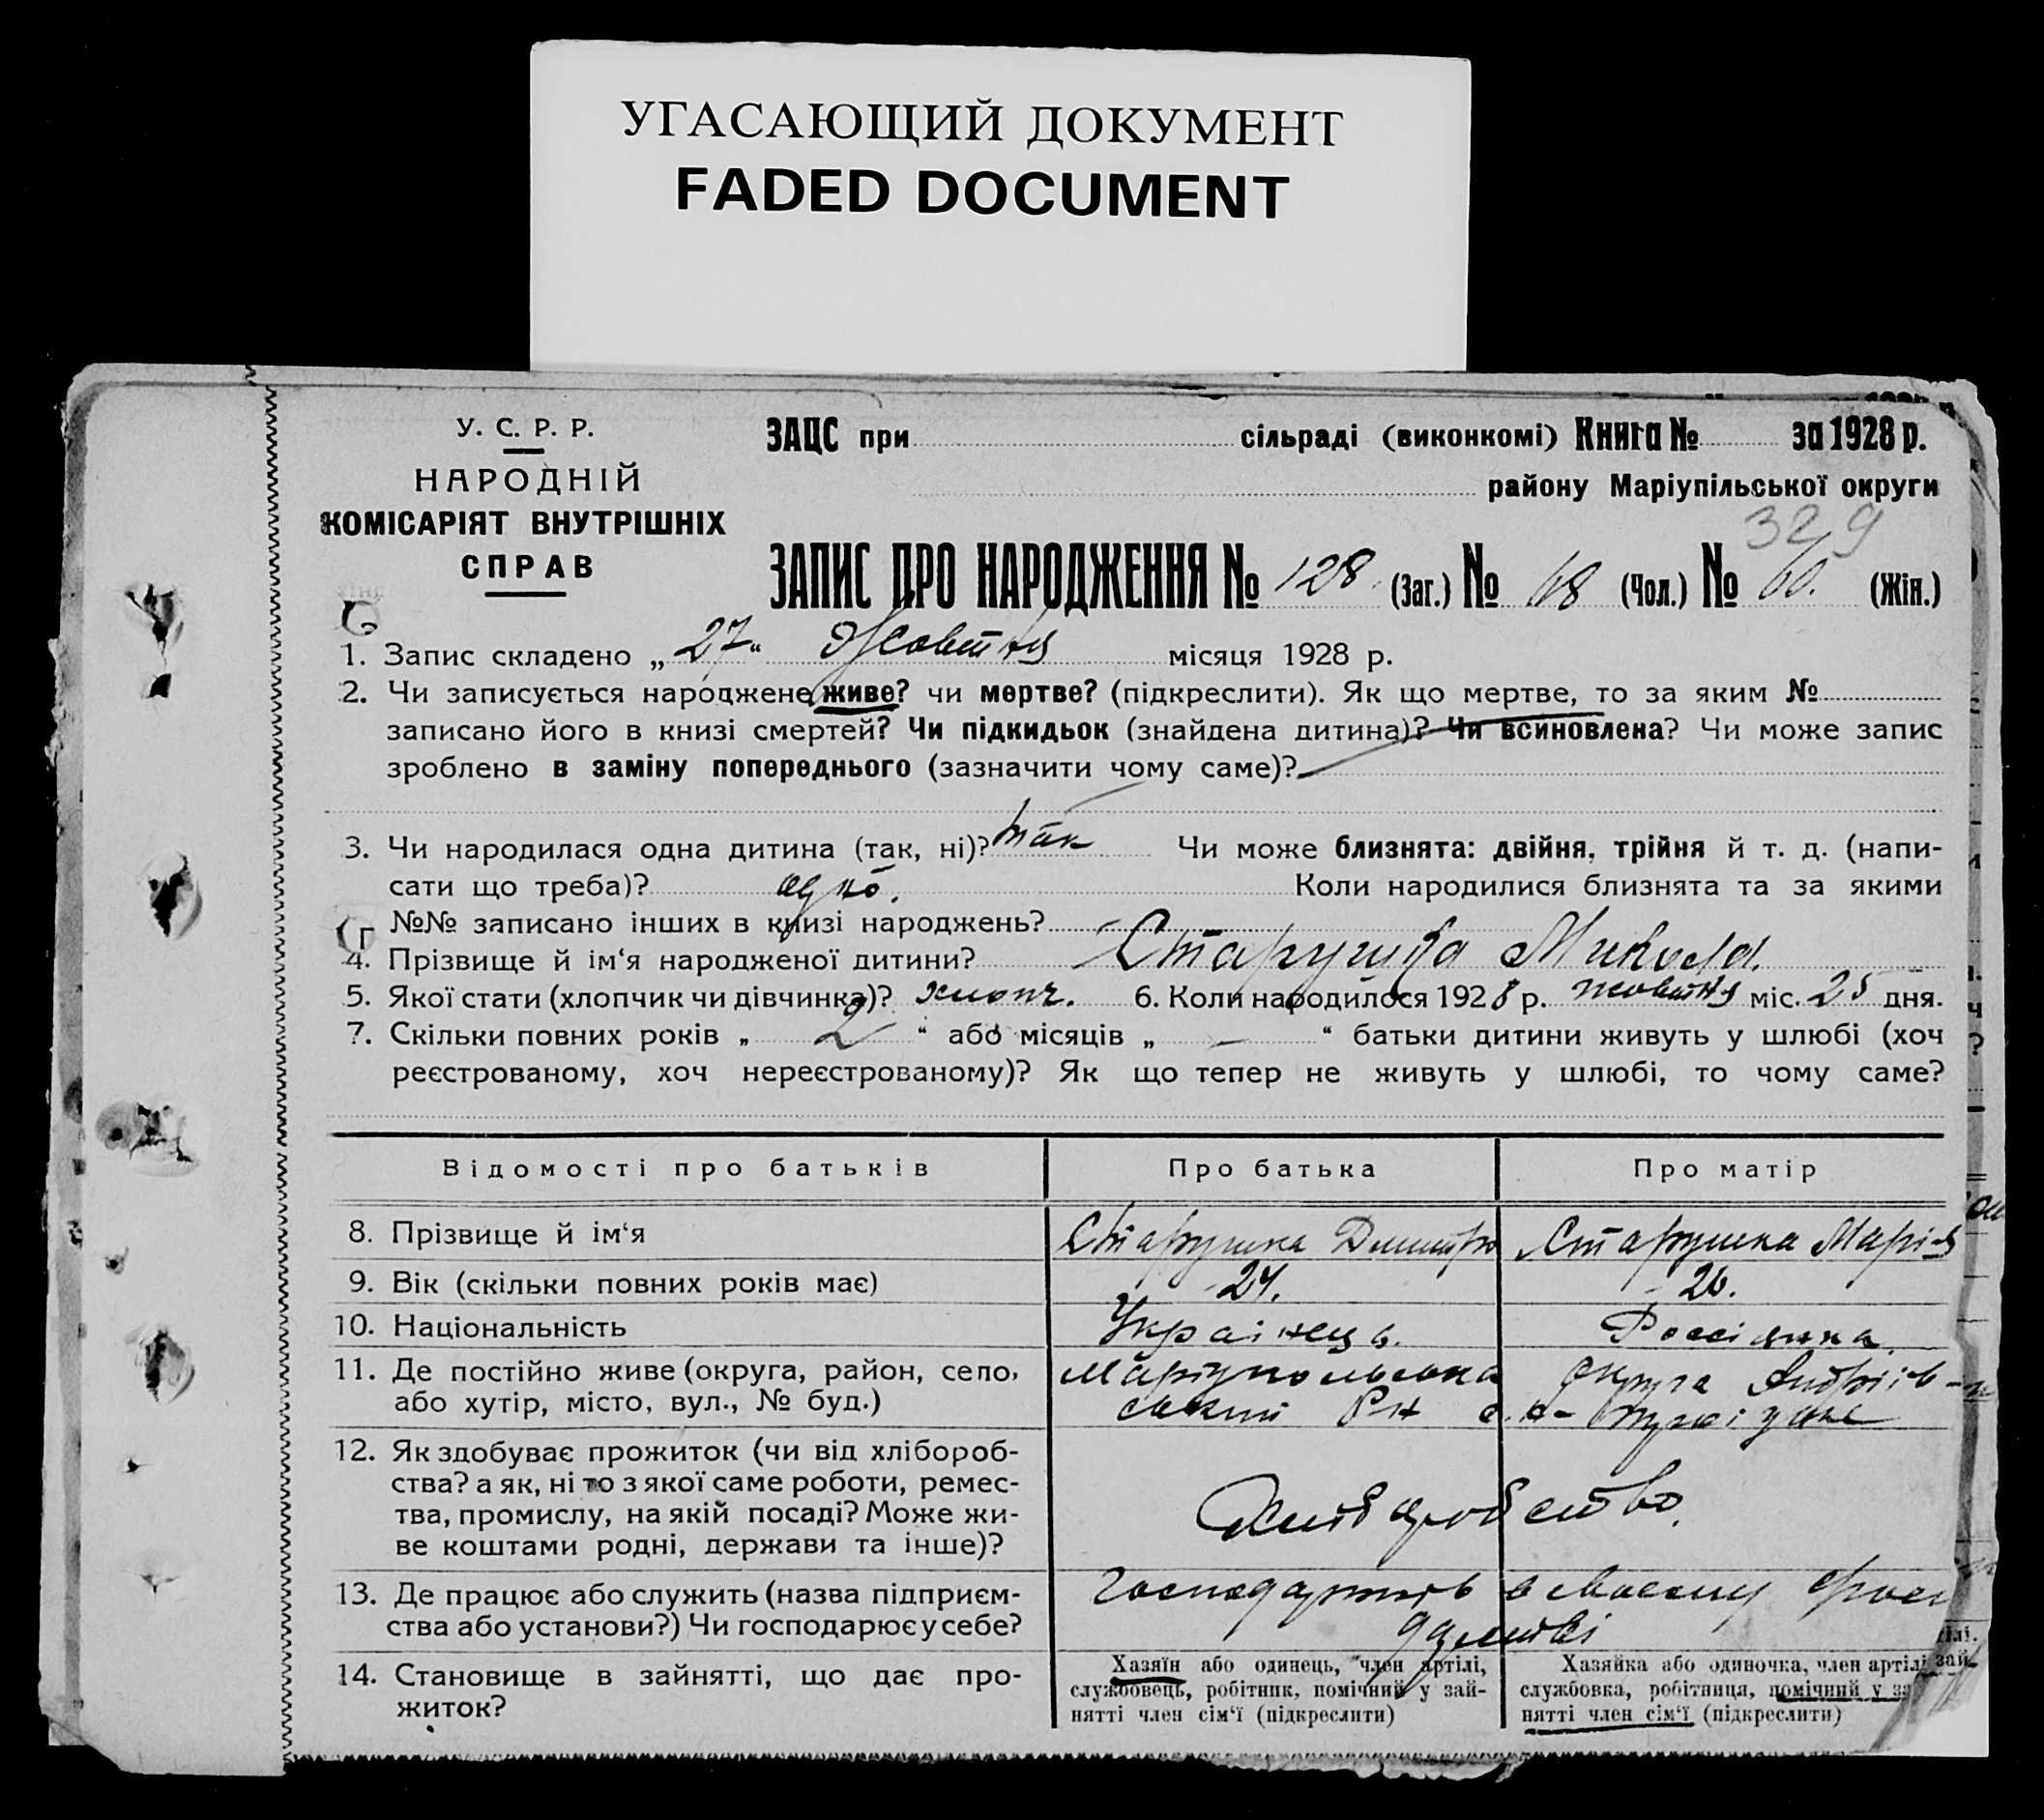 УГАСАЮЩИЙ ДОКУМЕНТ
FADED DOCUMENT
У. С. Р. Р.
НАРОДНІЙ
КОМІСАРІЯТ ВНУТРІШНІХ
СПРАВ
ЗАЦС при сільраді (виконкомі) Книга № за 1928 р.
району Маріупільської округи
329
ЗАПИС ПРО НАРОДЖЕННЯ № 128 (Заг.) № 68 (Чол.) № 60. (Жін.)
1. Запис складено „27“ Жовтня місяця 1928 р.
2. Чи записується народжене живе? чи мертве? (підкреслити). Як що мертве, то за яким №
записано його в книзі смертей? Чи підкидьок (знайдена дитина)? Чи всиновлена? Чи може запис
зроблено в заміну попереднього (зазначити чому саме)?
3. Чи народилася одна дитина (так, ні)? так Чи може близнята: двійня, трійня й т. д. (напи-
сати що треба)? одно. Коли народилися близнята та за якими
№№ записано інших в книзі народжень?
4. Прізвище й ім‘я народженої дитини? Старушка Микола.
5. Якої стати (хлопчик чи дівчинка)? хлопч. 6. Коли народилося 1928 р. жовтня міс. 25 дня.
7. Скільки повних років „ 2 “ або місяців „ – “ батьки дитини живуть у шлюбі (хоч
реєстрованому, хоч нереєстрованому)? Як що тепер не живуть у шлюбі, то чому саме?
Відомості про батьків Про батька Про матір
8. Прізвище й ім‘я Старушка Дмитро Старушка Марія
9. Вік (скільки повних років має) 24. 26.
10. Національність Українець. Россіянка
11. Де постійно живе (округа, район, село, Маріупольська округа Андріїв-
або хутір, місто, вул., № буд.) ський Рн
12. Як здобуває прожиток (чи від хлібороб-
ства? а як, ні то з якої саме роботи, ремес-
тва, промислу, на якій посаді? Може жи-
ве коштами родні, держави та інше)?
Хліборобство.
13. Де працює або служить (назва підприєм- в своєму
ства або установи?) Чи господарює у себе?
14. Становище в зайнятті, що дає про-
житок?
Хазяїн або одинець, член артілі,
службовець, робітник, помічний у зай-
нятті член сім‘ї (підкреслити)
Хазяйка або одиночка, член артілі
службовка, робітниця, помічний у за
нятті член сім‘ї (підкреслити)